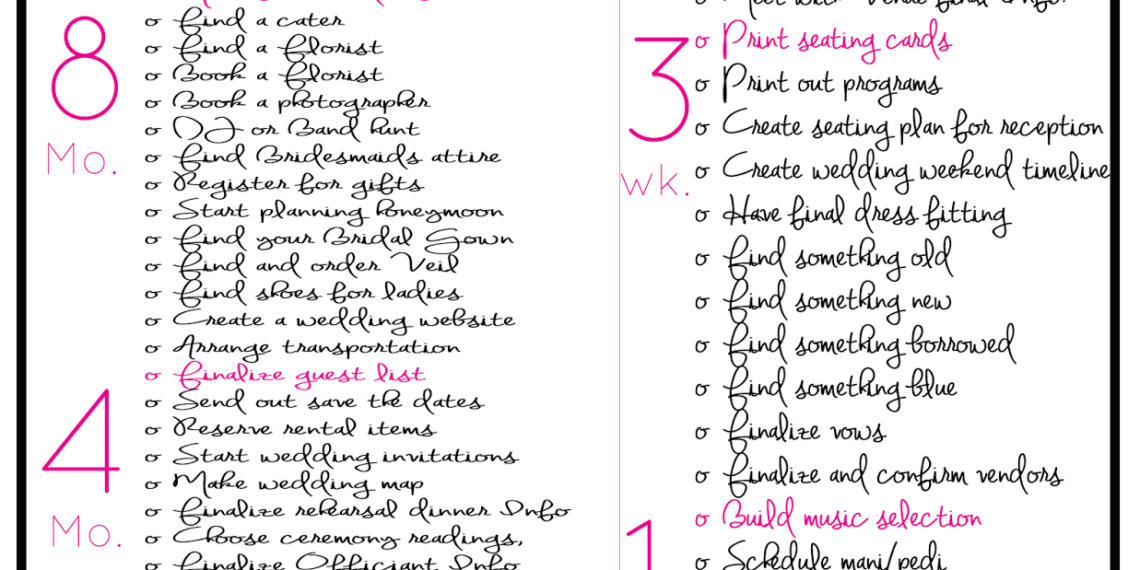 8
Mo.
o find a cater
o find a florist
o Book a florist
o Book a photographer
o DJ or Band hunt
o find Bridesmaids attire
o Register for gifts
o Start planning honeymoon
o find your Bridal Gown
o find and order Veil
o find shoes for ladies
o Create a wedding website
o Arrange transportation
4
Mo.
o finalize guest list
o Send out save the dates
o Reserve rental items
o Start wedding invitations
o Make wedding map
o finalize rehearsal dinner Info
o Choose ceremony readings,
o finalize Officiant Info
o Meet with Venue final Info.
3
wk.
o Print seating cards
o Print out programs
o Create seating plan for reception
o Create wedding weekend timeline
o Have final dress fitting
o find something old
o find something new
o find something borrowed
o find something blue
o finalize vows
o finalize and confirm vendors
1
o Build music selection
o Schedule mani/pedi